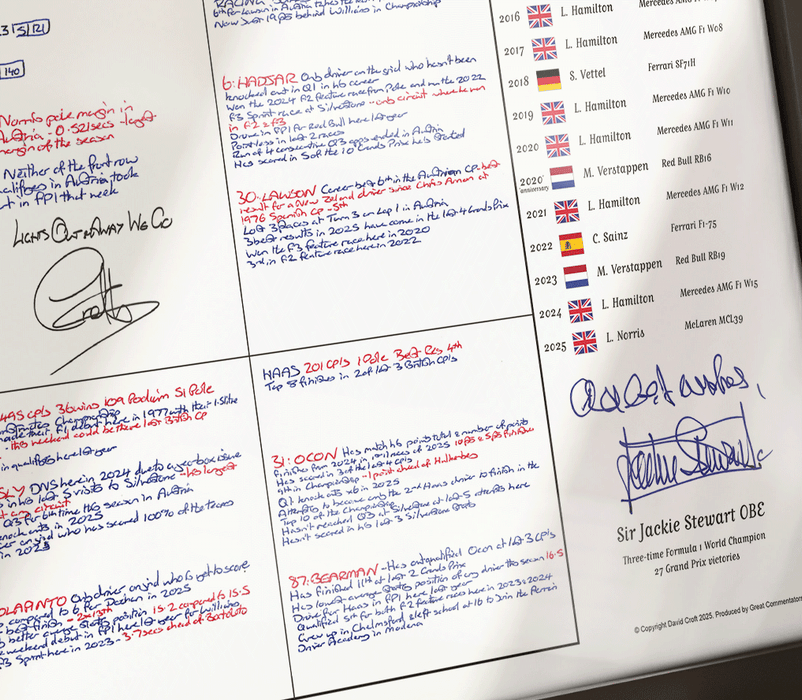 Now just 19pts behind Williams in Championship
6: HADJAR Only driver on the grid who hasn't been
knocked out in Q1 in his career
Won the 2024 F2 feature race from Pole and won the 2022
F3 Sprint race at Silverstone - only circuit where he won
in F2 & F3
Drove in FP1 for Red Bull here last year
Pointless in last 2 races
Run of 4 consecutive Q3 apps ended in Austria
Has scored in 5 of the 10 Grands Prix he's started
30: LAWSON Career best 6th in the Austrian GP - best
result for a New Zealand driver since Chris Amon at
1976 Spanish GP - 5th
Lost 3 places at Turn 3 on Lap 1 in Austria
3 best results in 2025 have come in the last 4 Grands Prix
Won the F3 feature race here in 2020
3rd in F2 feature race here in 2022
140
Norris pole margin in
Austria - 0.521secs - largest
margin of the season
Neither of the front row
qualifiers in Austria took
part in FP1 that week
LIGHTS OUT & AWAY WE GO
Croft
2016 L. Hamilton Mercedes AMG F1
2017 L. Hamilton Mercedes AMG F1 W08
2018 S. Vettel Ferrari SF71H
2019 L. Hamilton Mercedes AMG F1 W10
2020 L. Hamilton Mercedes AMG F1 W11
2020 anniversary M. Verstappen Red Bull RB16
2021 L. Hamilton Mercedes AMG F1 W12
2022 C. Sainz Ferrari F1-75
2023 M. Verstappen Red Bull RB19
2024 L. Hamilton Mercedes AMG F1 W15
2025 L. Norris McLaren MCL39
495 GPs 36 wins 109 Podiums 51 Pole
made their F1 debut here in 1977 with their 1st
this weekend could be there last British GP
in qualifying here last year
DNS here in 2024 due to a gearbox issue
in his last 5 visits to Silverstone - his longest
at any circuit
Q3 for 6th time this season in Austria
in 2025
on grid who has scored 100% of the teams
in 2025
COLAPINTO Only driver on grid who is yet to score
compared to 6 for Doohan in 2025
best finish - 13th
better average grid position 15.2 compared to 15.5
weekend debut in FP1 here last year for Williams
F3 Sprint here in 2023 - 3.7secs ahead of Bortoleto
HAAS 201 GPs 1 Pole Best Res 4th
Top 8 finishes in 2 of last 3 British GPs
31: OCON Has match his points total & number of points
finishes from 2024 in 1st 11 races of 2025
Has scored in 3 of the last 4 GPs
9th in Championship - 1 point ahead of Hulkenberg
Q1 knockouts x6 in 2025
Attempting to become only the 2nd Haas driver to finish in the
Top 10 of the Championship
Hasn't reached Q3 at Silverstone at last 5 attempts here
Hasn't scored in his last 3 Silverstone starts
87: BEARMAN - Has outqualified Ocon at last 3 GPs
Has finished 11th at last 2 Grands Prix
Has lowest average grid position of any driver this season 16.5
Drove for Haas in FP1 here last year
Qualified 5th for both F2 feature races here in 2023 & 2024
Grew up in Chelmsford & left school at 16 to join the Ferrari
Driver Academy in Modena
And best wishes,
Jackie Stewart
Sir Jackie Stewart OBE
Three-time Formula 1 World Champion
27 Grand Prix victories
© Copyright David Croft 2025. Produced by Great Commentators